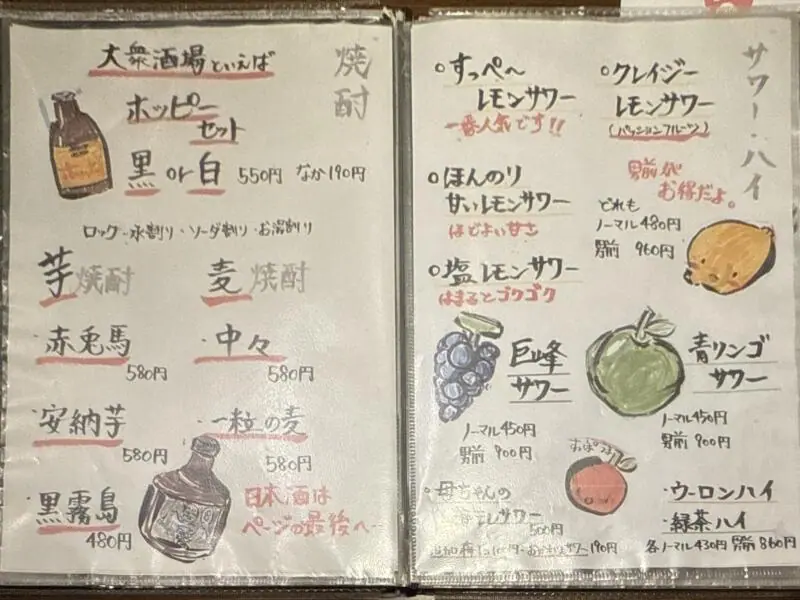 焼酎
大衆酒場といえば
ホッピー
セット
黒 or 白 550円 なか190円
ロック・水割り・ソーダ割り・お湯割り
芋焼酎
・赤兎馬
580円
・安納芋
580円
・黒霧島
480円
麦焼酎
・中々
580円
・一粒の麦
580円
日本酒は
ページの最後へ…
サワー・ハイ
すっぺ〜
レモンサワー
一番人気です!!
ほんのり
甘いレモンサワー
ほどよい甘さ
塩レモンサワー
はまるとゴクゴク
クレイジー
レモンサワー
(パッションフルーツ)
男前が
お得だよ。
どれも
ノーマル480円
男前 960円
巨峰
サワー
ノーマル450円
男前 900円
青リンゴ
サワー
ノーマル450円
男前 900円
・母ちゃんの
サワー
500円
サワー190円
・ウーロンハイ
・緑茶ハイ
各ノーマル430円 男前860円